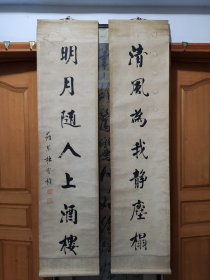 清風為我静塵榻
明月随人上酒樓